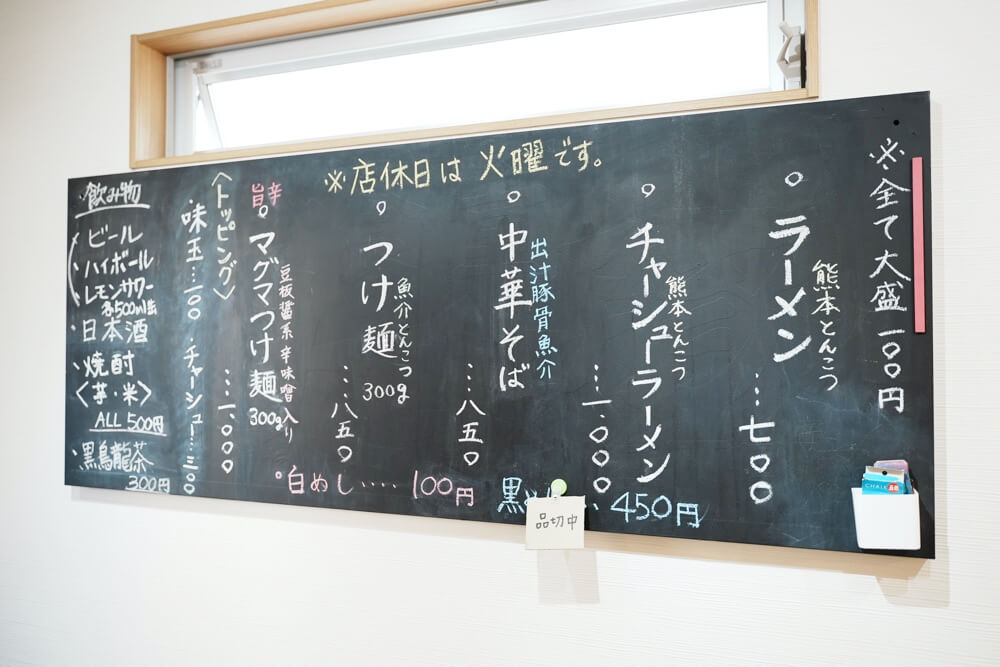 ※店休日は 火曜です。
※全て大盛一〇〇円
。ラーメン
熊本とんこつ
…七〇〇
。チャーシューラーメン
熊本とんこつ
…一.〇〇〇
。中華そば
出汁豚骨魚介
…八五〇
。つけ麺 300g
魚介とんこつ
…八五〇
旨辛
。マグマつけ麺 300g
豆板醤系 辛味噌入り
…一.〇〇〇
〈トッピング〉
・味玉…一〇〇
・チャーシュー…三〇〇
・飲み物
・ビール
・ハイボール
・レモンサワー
各500ml缶
・日本酒
・焼酎
〈芋・米〉
ALL 500円
・黒烏龍茶
300円
。白めし‥‥ 100円
黒 ‥450円
品切中
CHALK